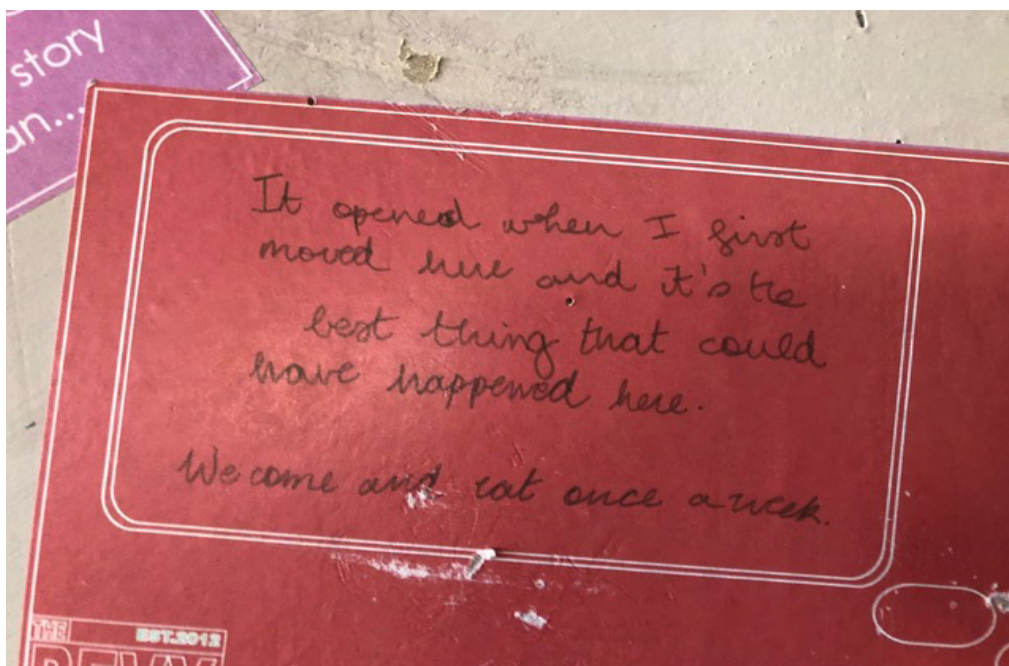 story
an...
It opened when I first
moved here and it's the
best thing that could
have happened here.
We come and eat once a week.
THE
EST.2012
BEVY